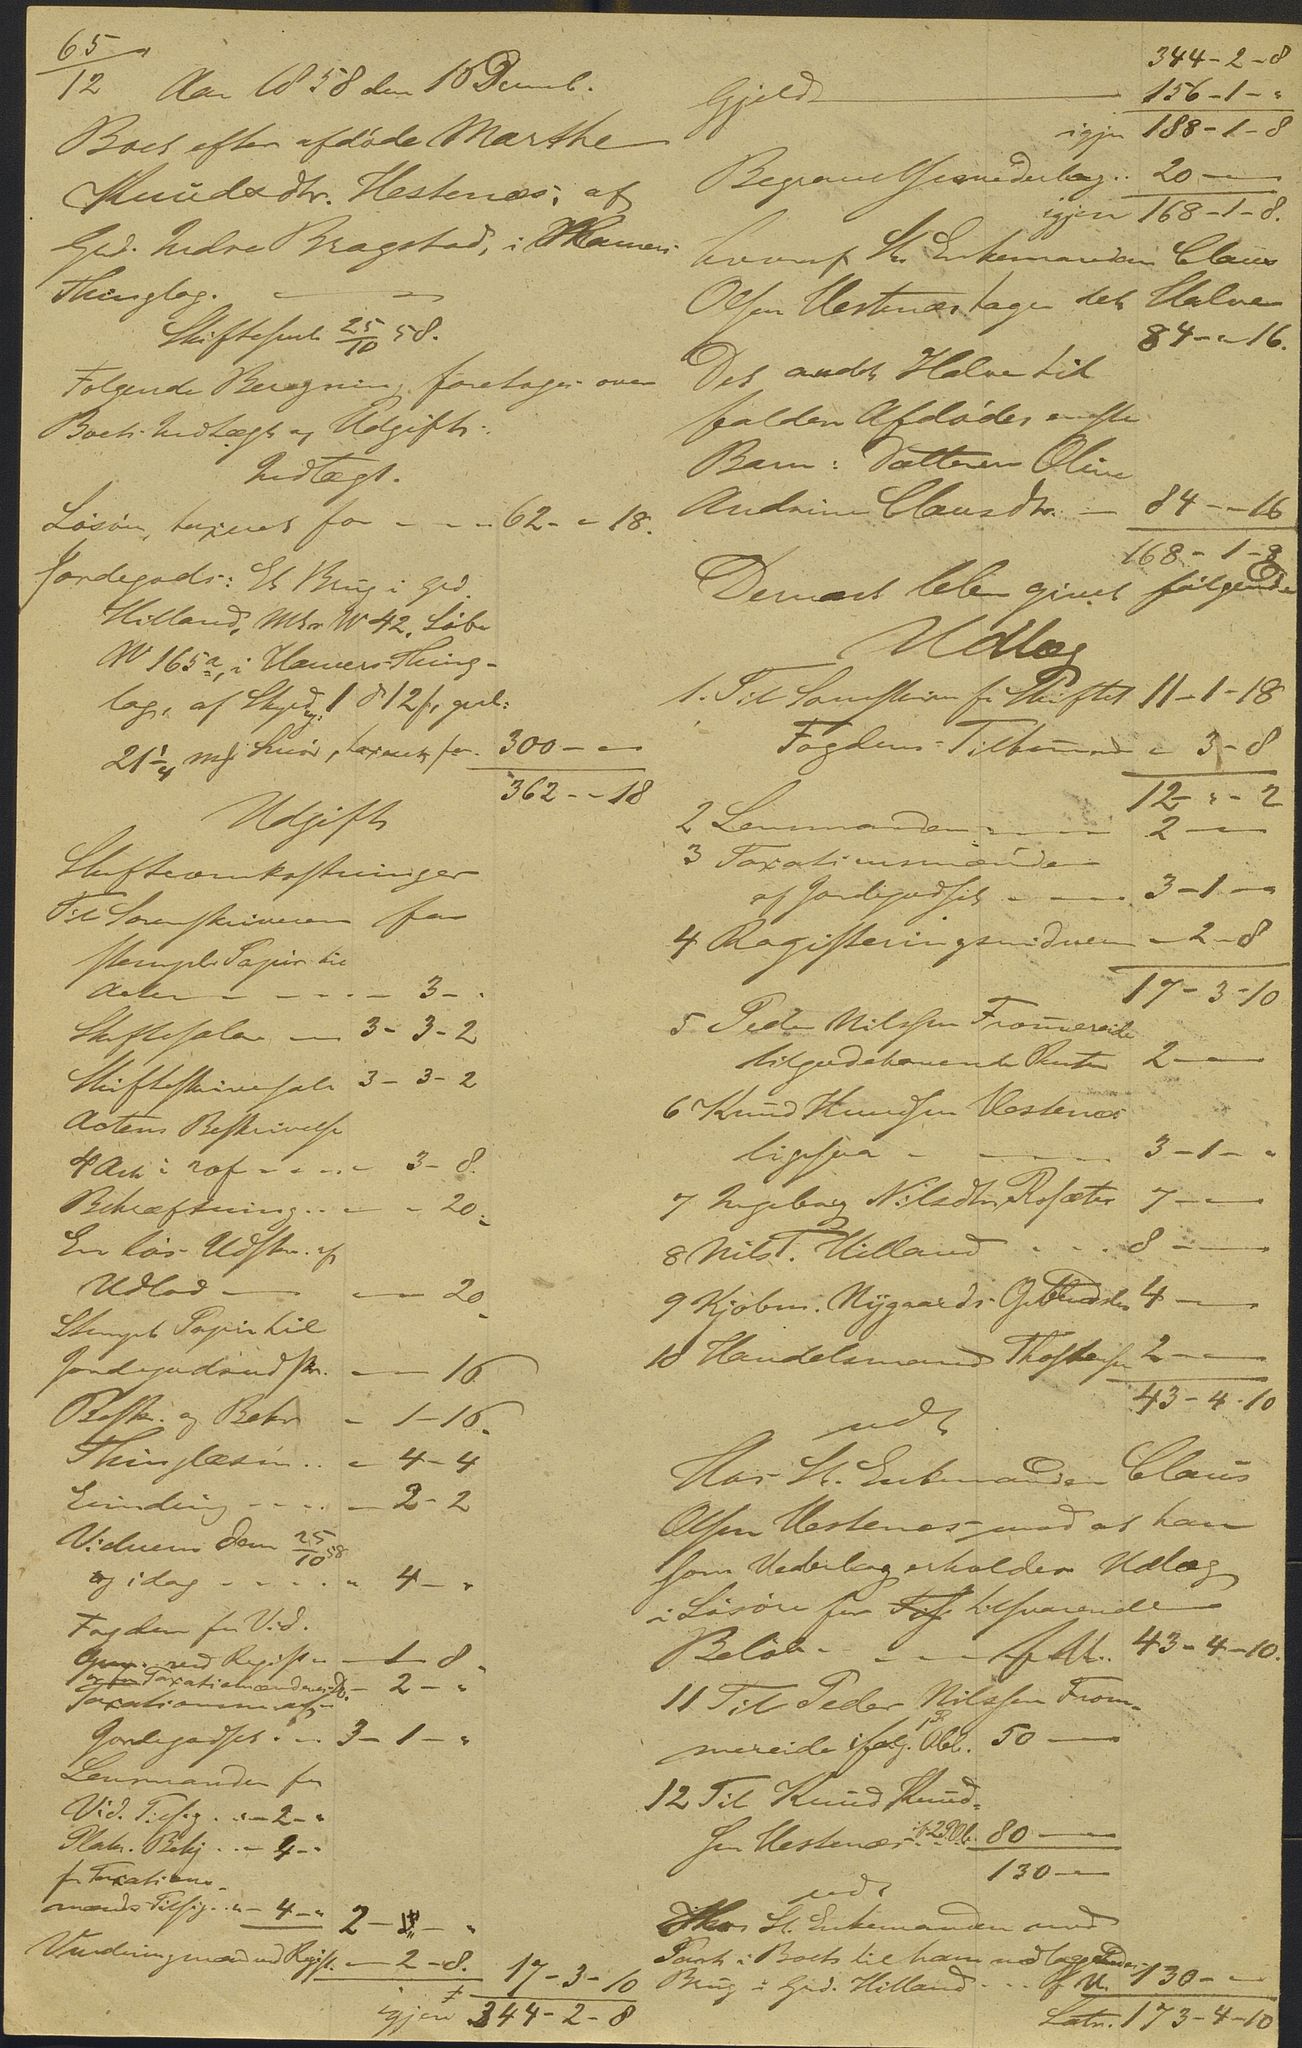 65
12 Aar 1858 den 16 Decmb.
Boet efter afdøde Marthe
Knudsdtr. Hestenæs, af
Grd. Indre Bragstad, i Hamers
Thinglag.
Skiftesml. 25/10 58.
Følgende Beregning foretages over
Boets Indtægt og Udgift:
Indtægt.
Løsøre, taxeret for - - - 62 - " 18.
Jordegods: Et Brug i Grd.
Hilland, Mtr N 42, Løbe
N 165a, i Hamers Thing-
lag, af Skyld 1 d 12 s, gml.
21 1/4 mrk Smør, taxeret for 300 - "
362 - - 18
Udgift
Skifteomkostninger
Til Sorenskriveren for
stemplt Papir til
Acten - - - - 3 - "
Skiftesalær - 3 - 3 - 2
Skifteskriversalær 3 - 3 - 2
Actens Beskrivelse
4 Ark i - - - 3 - 8.
Bekræftning - - " 20
En løs Udskr. af
Udlod - - - 20
Stemplt Papir til
Jordegodsudskr. - - 16
Beskr. og Bekr - 1 - 16
Thinglæsn. . . - 4 - 4
Vidnerne dem 25/10 58
og idag - - - - " 4 - "
Fogden for Vid.
ved Regist - 1 - 8
Taxationsmændene - 2 - "
Taxationsm. af
Jordegodset - - 3 - 1 - "
Lensmanden for
Vid. Tilsig. - - 2 - "
Plak. Bekj - - 4 - "
for Taxations-
mænds Tilsig. - - 4 - " 2 - "
Vurderingsmænd ved Regist. - 2 - 8. 17 - 3 - 10
igjen 344 - 2 - 8
344 - 2 - 8
Gjeld 156 - 1 - "
igjen 188 - 1 - 8
Begravelsesnæderlag . . 20 - "
igjen 168 - 1 - 8.
hvoraf St. Enkemanden Claus
Olsen Hestenæs tager det Halve
84 - " 16.
Det andet Halve til
falden Afdødes eneste
Barn: Datteren Oline
Andrine Clausdtr. - 84 - - 16
168 - 1 - 8
Dernæst blev givet følgende
Udlæg
1. Til Sorenskriv. for Skiftet 11 - 1 - 18
Fogdens Tilkommende " 3 - 8
12 - " - 2
2 Lensmanden - - - 2 - "
3 Taxationsmænden
af Jordegodset - - - 3 - 1 - "
4 Registeringsvidnerne - 2 - 8
17 - 3 - 10
5 Peder Nilssen Frommereide
tilgodehavende Renter 2 - "
6 Knud Knudsen Hestenæs
ligesaa - - - - 3 - 1 - "
7 Ingeborg Nilsdtr. Rosæter 7 - "
8 Nils T. Hilland - - - 8 - "
9 Kjøbm. Nygaards 4 - "
10 Handelsmand 2 - "
43 - 4 - 10
udl
Hos St. Enkemanden Claus
Olsen Hestenæs mod at han
som Vederlag erholder Udlæg
i Løsøre for tilsvarende
Beløb - - - 43 - 4 - 10.
11 Til Peder Nilssen From-
mereide ifølg. 1 Pr. Obl. 50 - "
12 Til Knud Knud-
sen Hestenæs 80 - "
130 - "
udl
Hos St. Enkemanden mod
Pant i Boets til ham udlagte
Brug i Grd. Hilland - - 130 - "
Latr. 173 - 4 - 10